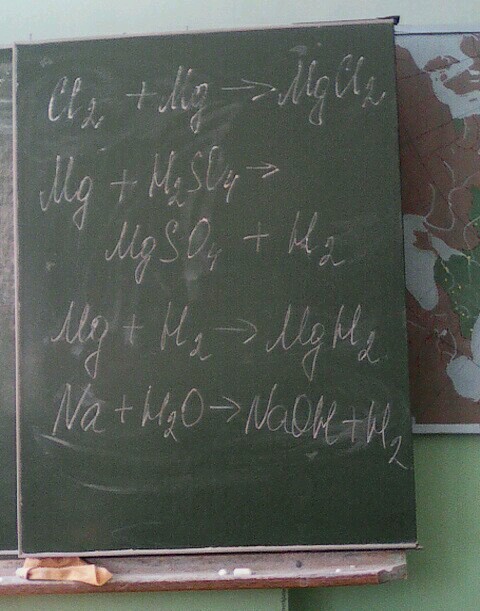 Cl₂ + Mg → MgCl₂
Mg + H₂SO₄ →
MgSO₄ + H₂
Mg + H₂ → MgH₂
Na + H₂O → NaOH + H₂